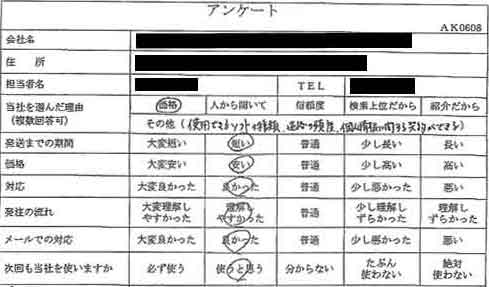 アンケート
AK0608
会社名
住 所
担当者名 TEL
当社を選んだ理由 (複数回答可) 価格 人から聞いて 信頼度 検索上位だから 紹介だから
その他 (使用できるソフトの種類、連絡の頻度、個人情報に関する契約ができる)
発送までの期間 大変短い 短い 普通 少し長い 長い
価格 大変安い 安い 普通 少し高い 高い
対応 大変良かった 良かった 普通 少し悪かった 悪い
発注の流れ 大変理解しやすかった 理解しやすかった 普通 少し理解しずらかった 理解しずらかった
メールでの対応 大変良かった 良かった 普通 少し悪かった 悪い
次回も当社を使いますか 必ず使う 使うと思う 分からない たぶん使わない 絶対使わない